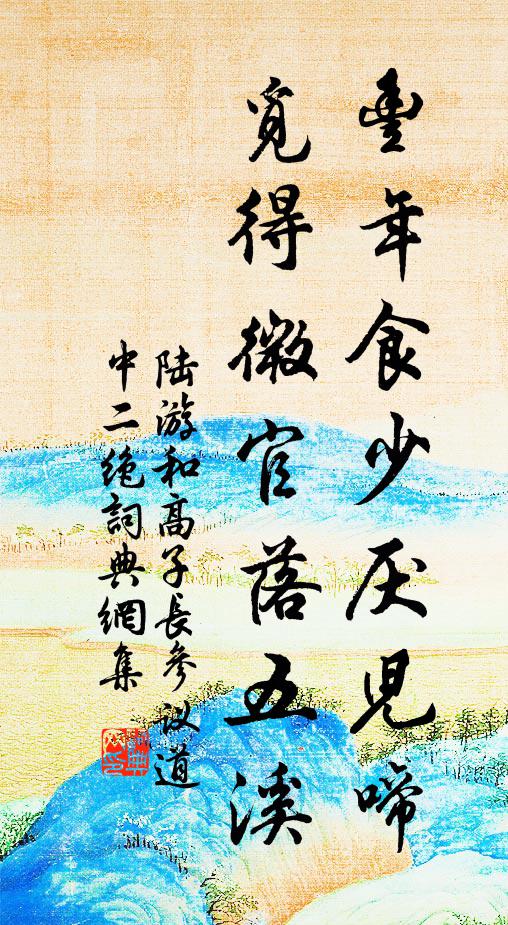 豐年食少厌兒啼
覓得微官落五溪
陆游和高子長參议道
中二绝詞典網集